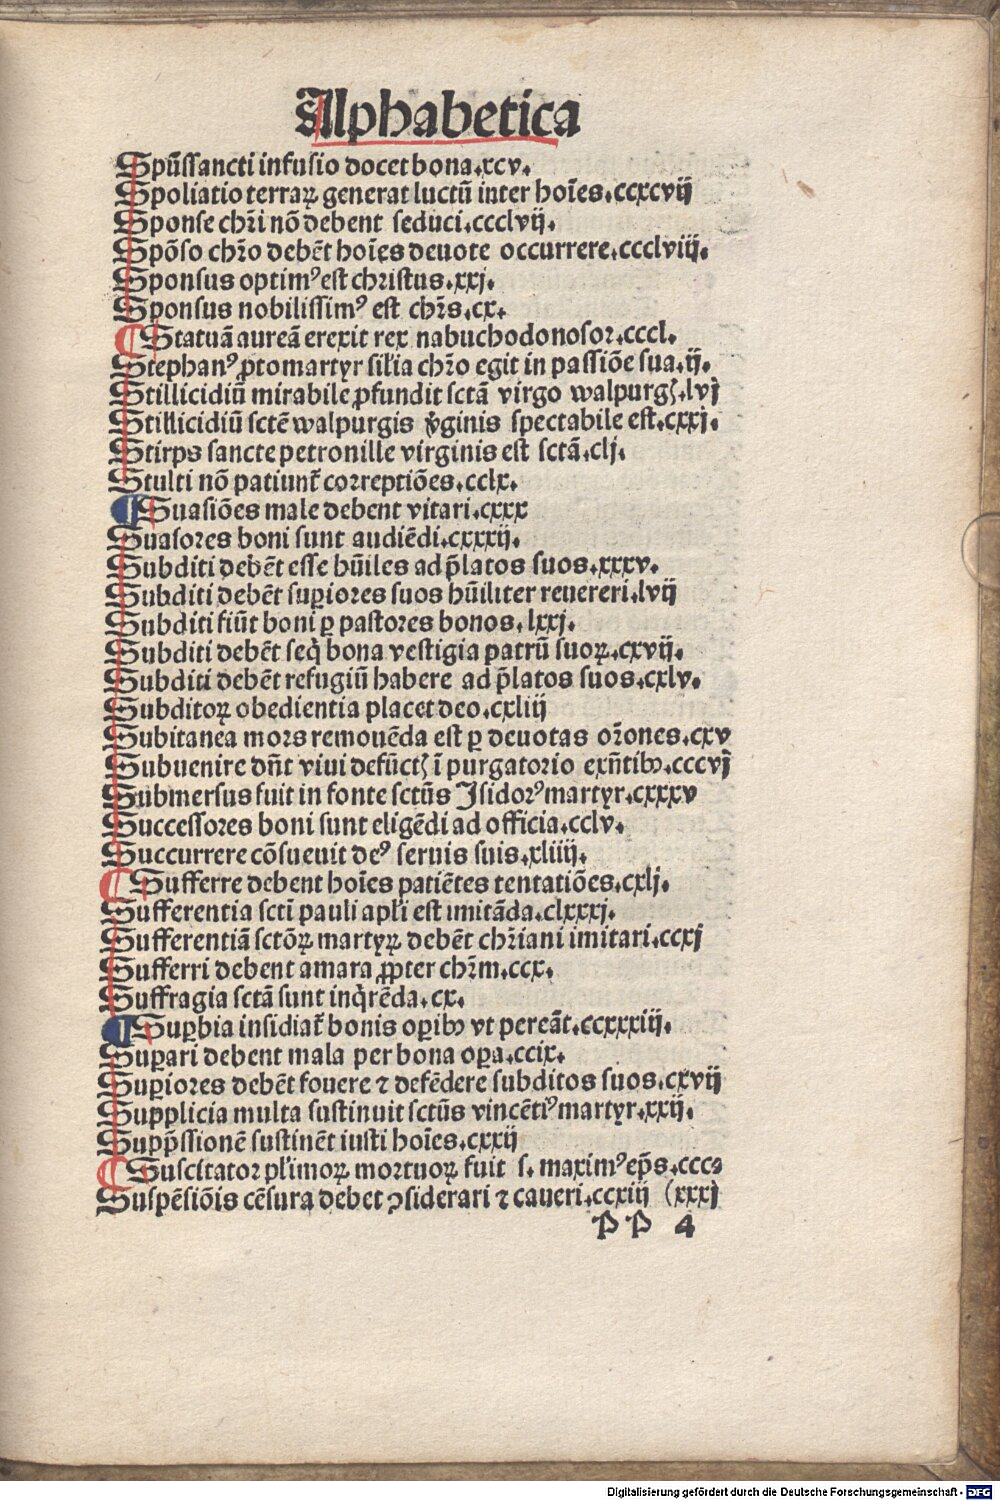 Alphabetica
Spūssancti infusio docet bona.xcv.
Spoliatio terraꝝ generat luctū inter hoīes.ccxcvij
Sponse chr̄i nō debent seduci.ccclvij.
Spōso chr̄o debēt hoīes deuote occurrere.ccclviij.
Sponsus optimꝰ est christus.xxj.
Sponsus nobilissimꝰ est chr̄s.cx.
¶ Statuā aureā erexit rex nabuchodonosor.cccl.
Stephanꝰ ꝓtomartyr sil̄ia chr̄o egit in passiōe sua.ij.
Stillicidiū mirabile ꝓfundit sctā virgo walpurgꝭ.lvj
Stillicidiū sctē walpurgis v̄ginis spectabile est.cxxj.
Stirps sancte petronille virginis est sctā.clj.
Stulti nō patiunt᷑ correptiōes.cclx.
¶ Suasiōes male debent vitari.cxxx
Suasores boni sunt audiēdi.cxxxij.
Subditi debēt esse hūiles ad p̄latos suos.xxxv.
Subditi debēt suꝑiores suos hūiliter reuereri.lvij
Subditi fiūt boni ꝑ pastores bonos.lxxj.
Subditi debēt seq̇ bona vestigia patrū suoꝝ.cxvij.
Subditi debēt refugiū habere ad p̄latos suos.cxlv.
Subditoꝝ obedientia placet deo.cxliij
Subitanea mors remouēda est ꝑ deuotas or̄ones.cxv
Subuenire dn̄t viui defūctꝭ ī purgatorio exn̄tibꝰ.cccvj
Submersus fuit in fonte sctūs Isidorꝰ martyr.cxxxv
Successores boni sunt eligēdi ad officia.cclv.
Succurrere cōsueuit deꝰ seruis suis.xliiij.
¶ Sufferre debent hoīes patiētes tentatiōes.cxlj.
Sufferentia scti pauli apl̄i est imitāda.clxxxj.
Sufferentiā sctōꝝ martyꝝ debēt chr̄iani imitari.ccxj
Sufferri debent amara ꝓpter chr̄m.ccx.
Suffragia sctā sunt inq̇rēda.cx.
¶ Suꝑbia insidiat᷑ bonis oꝑibꝰ vt pereāt.ccxxxiij.
Suꝑari debent mala per bona oꝑa.ccix.
Suꝑiores debēt fouere ⁊ defēdere subditos suos.cxvij
Supplicia multa sustinuit sctūs vincētiꝰ martyr.xxij.
Supp̄ssionē sustinēt iusti hoīes.cxxij
¶ Suscitator pl̄imoꝝ mortuoꝝ fuit s. maximꝰ ep̄s.ccc⸗
Suspēsiōis cēsura debet ꝯsiderari ⁊ caueri.ccxiij (xxxj
PP 4
Digitalisierung gefördert durch die Deutsche Forschungsgemeinschaft - DFG